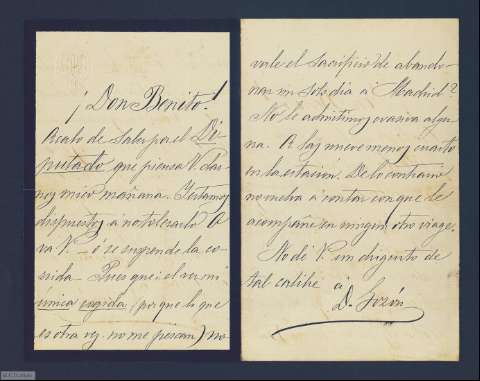 ¡Don Benito!
Acabo de saber por el Di-
putado que piensa V. dar
nos mico mañana. Estamos
dispuestos á no tolerarlo. O
va V. – ó se suspende la co-
rrida. Pues que: el ver mi
única cogida (porque lo que
es otra vez no me pescan) no
vale el sacrificio de abando-
nar un solo dia á Madrid?
No le admitimos evasiva algu-
na. A las nueve menos cuarto
en la estación. De lo contrario
no vuelva á contar con que le
acompañe en ningun otro viage.
No dé V. un disgusto de
tal calibre á
D.